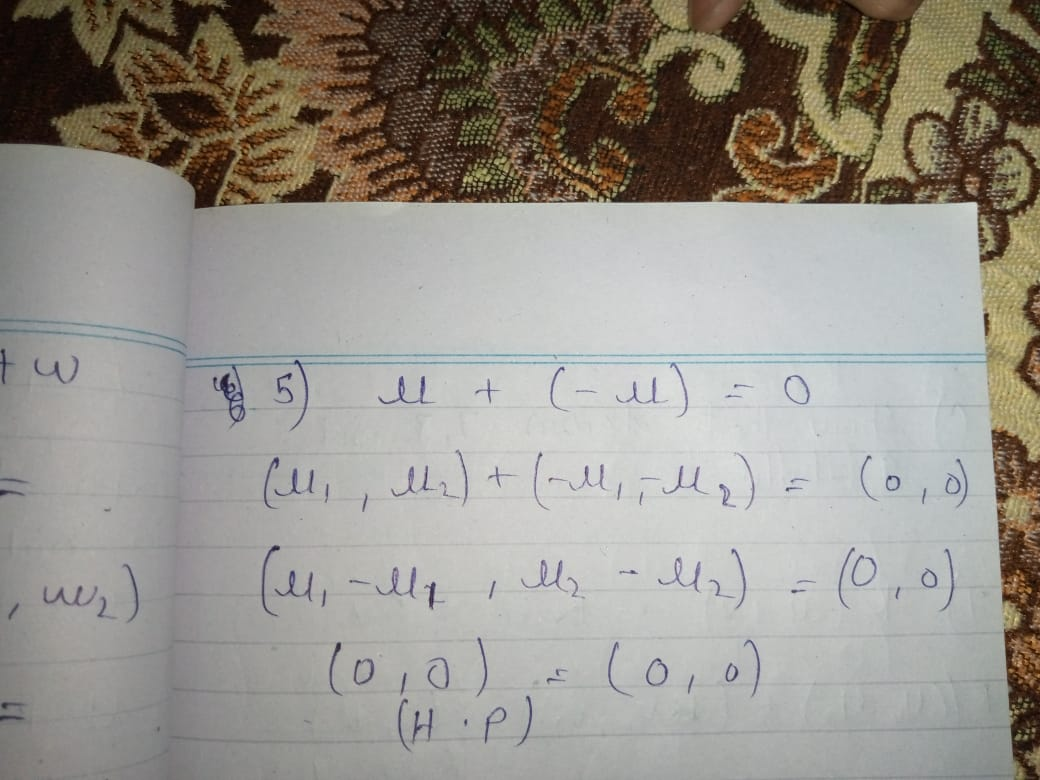 + w
=
, w₂)
=
5) u + (-u) = 0
(u₁ , u₂) + (-u₁, -u₂) = (0, 0)
(u₁ - u₁ , u₂ - u₂) = (0, 0)
(0, 0) = (0, 0)
(H.P)